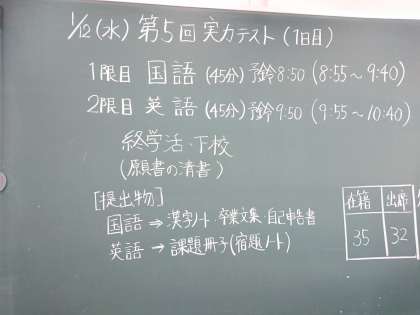 1/12(水) 第5回 実力テスト (1日目)
1限目 国語 (45分) 予鈴8:50 (8:55～9:40)
2限目 英語 (45分) 予鈴9:50 (9:55～10:40)
終学活・下校
(願書の清書)
[提出物]
国語 ⇒ 漢字ノート・卒業文集・自己申告書
英語 → 課題冊子(宿題ノート)
在籍 出席
35 32